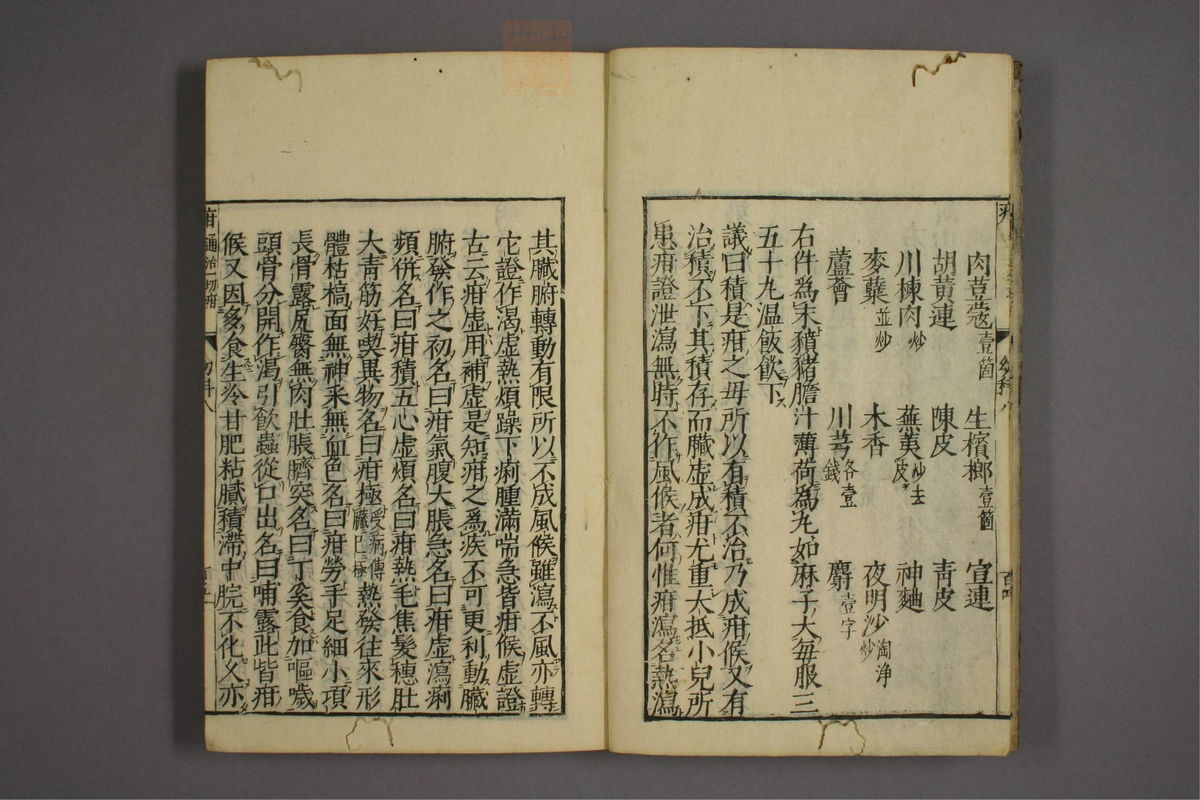 肉荳蔻壹箇 生檳榔壹箇 宣連
胡黃連 陳皮 青皮
川楝肉炒 蕪荑炒去皮 神麯
麥蘗並炒 木香 夜明沙淘净炒
蘆薈 川芎各壹錢 麝壹字
右件為末豶豬膽汁薄荷為丸如麻子大每服三
五十丸温飯飲下
議曰積是疳之母所以有積不治乃成疳候又有
治積不下其積存而臟虛成疳尤重大抵小兒所
患疳證泄瀉無時不作風候者何惟疳瀉名熱瀉
幼科八
其臟腑轉動有限所以不成風候雖瀉不風亦轉
它證作渴虛熱煩躁下痢腫滿喘急皆疳候虛證
古云疳虛用補虛是知疳之為疾不可更利動臟
腑發作之初名曰疳氣腹大脹急名曰疳虛瀉痢
頻併名曰疳積五心虛煩名曰疳熱毛焦髮穗肚
大青筋好喫異物名曰疳極受病傳臟巳極熱發往來形
體枯槁面無神采無血色名曰疳勞手足細小項
長骨露尻臀無肉肚脹臍突名曰丁奚食加嘔噦
頭骨分開作渴引飲蟲從口出名曰哺露此皆疳
候又因多食生冷甘肥粘膩積滯中脘不化又亦